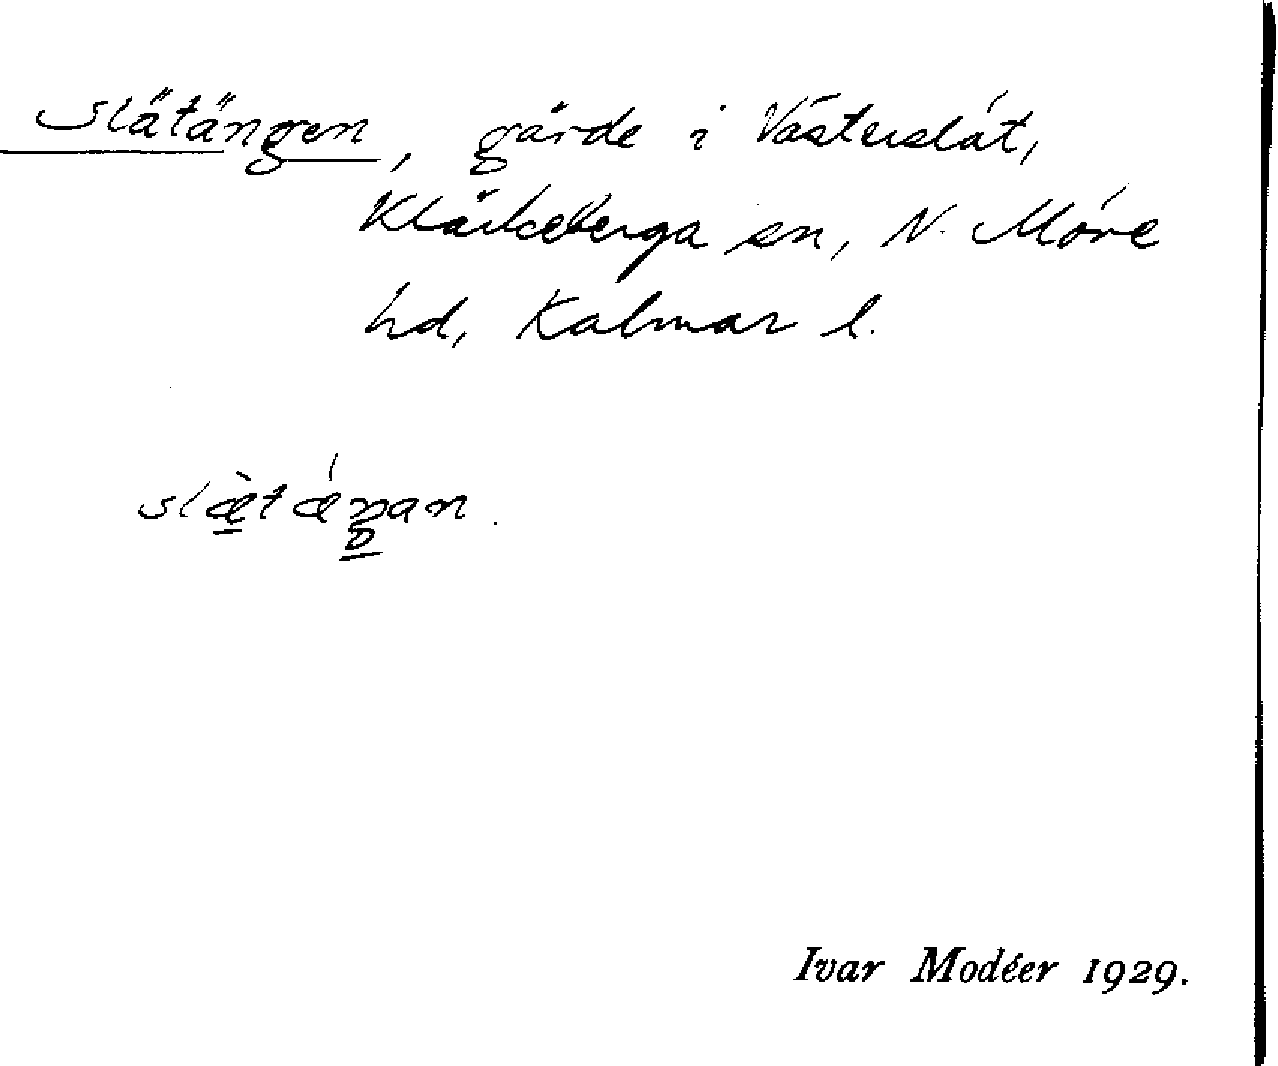 Slätängen, gärde i Västerslät,
Kläckeberga sn, N. Möre
hd, Kalmar l.
slæ̀tǽŋan.
Ivar Modéer 1929.